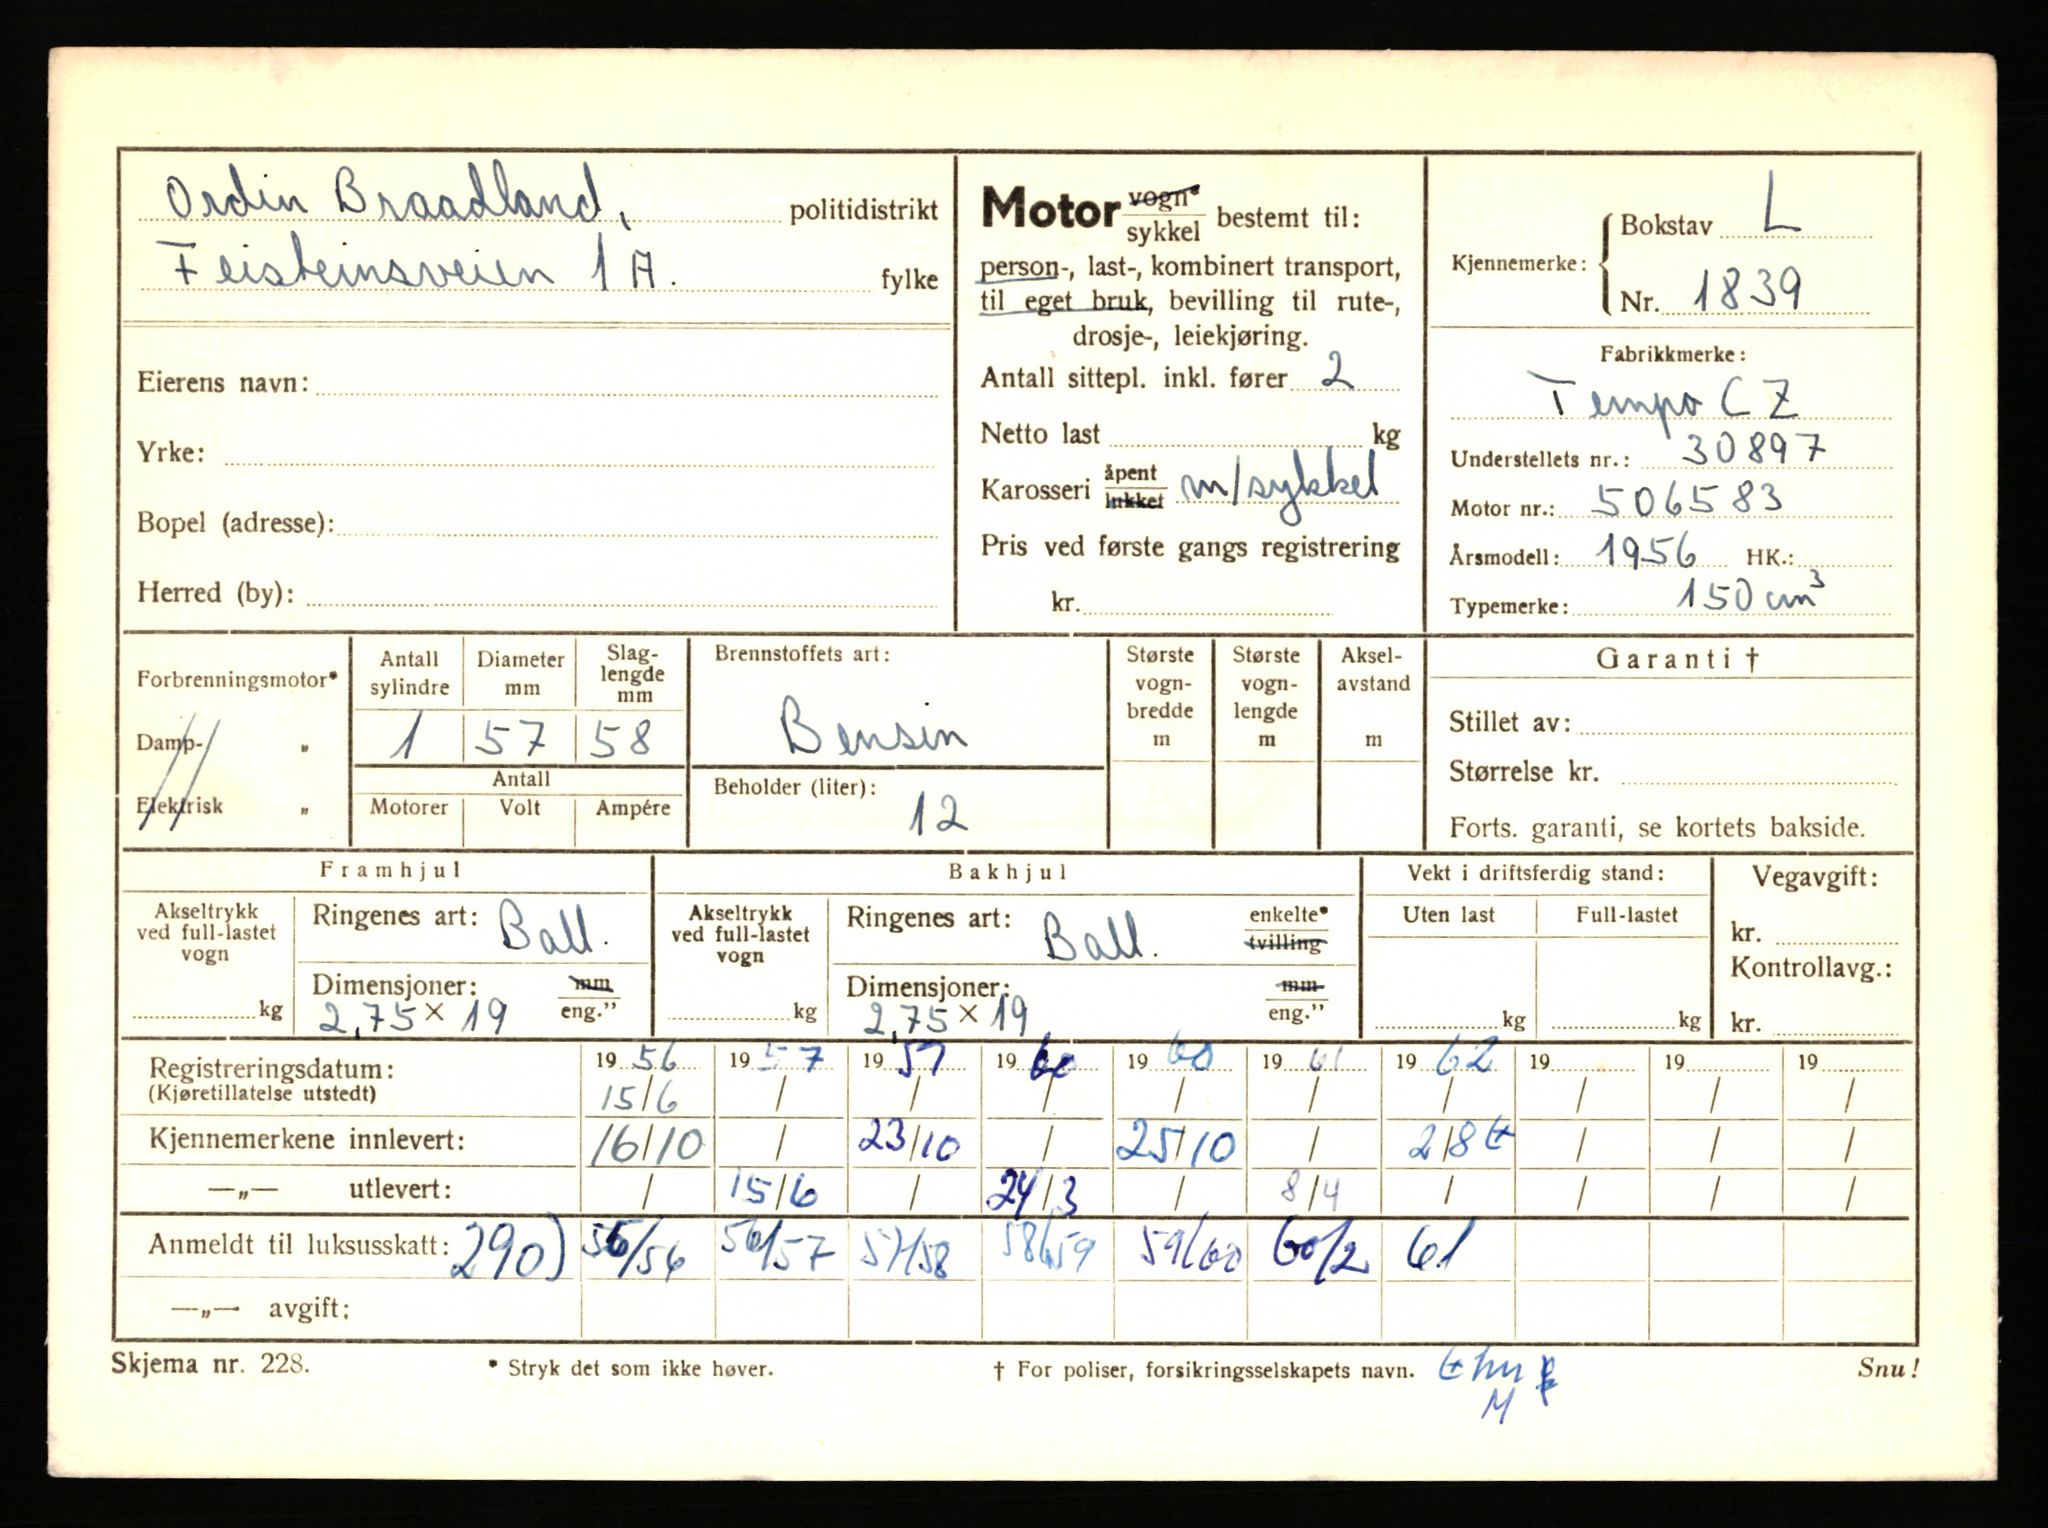 Ordin Braadland, politidistrikt
Feisteinsveien 1A. fylke
Eierens navn:
Yrke:
Bopel (adresse):
Herred (by):
Motor vogn* / sykkel bestemt til:
person-, last-, kombinert transport,
til eget bruk, bevilling til rute-,
drosje-, leiekjøring.
Antall sittepl. inkl. fører 2
Netto last kg
Karosseri åpent / lukket m/sykkel
Pris ved første gangs registrering
kr.
Kjennemerke: Bokstav L
Nr. 1839
Fabrikkmerke:
Tempo CZ
Understellets nr.: 30897
Motor nr.: 506583
Årsmodell: 1956 HK.:
Typemerke: 150 cm³
Forbrenningsmotor*
Damp- „
Elektrisk „
Antall sylindre 1
Diameter mm 57
Slaglengde mm 58
Antall
Motorer Volt Ampére
Brennstoffets art:
Bensin
Beholder (liter):
12
Største vogn-bredde m
Største vogn-lengde m
Aksel-avstand m
Garanti †
Stillet av:
Størrelse kr.
Forts. garanti, se kortets bakside.
Framhjul
Akseltrykk ved full-lastet vogn
kg
Ringenes art: Ball.
Dimensjoner: mm / eng."
2,75 × 19
Bakhjul
Akseltrykk ved full-lastet vogn
kg
Ringenes art: Ball. enkelte* / tvilling
Dimensjoner: mm / eng."
2,75 × 19
Vekt i driftsferdig stand:
Uten last Full-lastet
kg kg
Vegavgift:
kr.
Kontrollavg.:
kr.
Registreringsdatum: 1956 1957 1957 1960 1960 1961 1962 19 19 19
(Kjøretillatelse utstedt) 15/6 / / / / / / / / /
Kjennemerkene innlevert: 16/10 / 23/10 / 25/10 / 2/8 / / /
—„— utlevert: / 15/6 / 24/3 / 8/4 / / / /
Anmeldt til luksusskatt: 290) 56/56 56/57 57/58 58/59 59/60 60/2 61
—„— avgift:
Skjema nr. 228. * Stryk det som ikke høver. † For poliser, forsikringsselskapets navn. Snu!
M